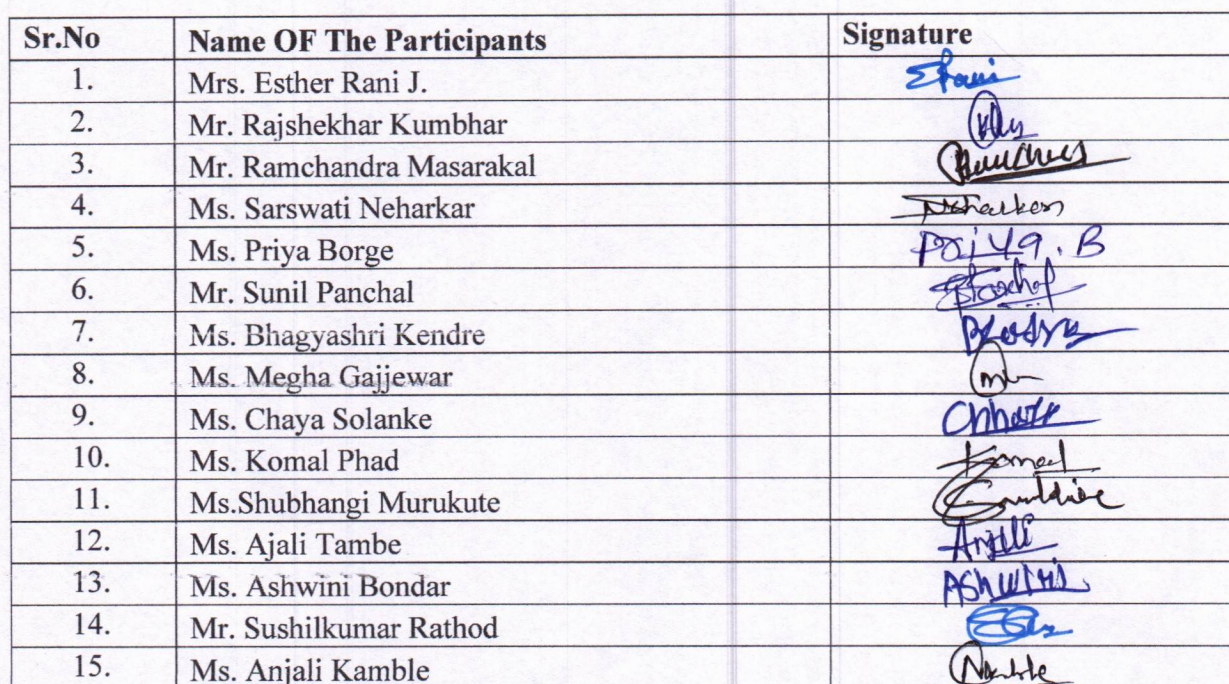 Sr.No Name OF The Participants Signature
1. Mrs. Esther Rani J. ERani
2. Mr. Rajshekhar Kumbhar
3. Mr. Ramchandra Masarakal
4. Ms. Sarswati Neharkar
5. Ms. Priya Borge Priya.B
6. Mr. Sunil Panchal
7. Ms. Bhagyashri Kendre
8. Ms. Megha Gajjewar
9. Ms. Chaya Solanke
10. Ms. Komal Phad Komal
11. Ms.Shubhangi Murukute
12. Ms. Ajali Tambe Anjali
13. Ms. Ashwini Bondar AShwini
14. Mr. Sushilkumar Rathod
15. Ms. Anjali Kamble